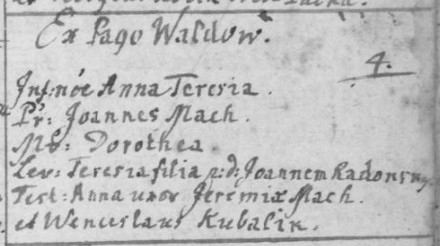 Ex Pago Waldow.
4.
Inf: nőe Anna Teresia.
Pr: Joannes Mach.
Mr: Dorothea.
Lev: Teresia filia p: d: Joannem
Test: Anna uxor Jeremiæ Mach.
et Wenceslaus Kubalik.